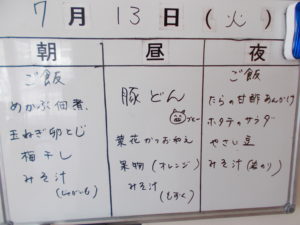 7月13日(火)
朝
ご飯
めかぶ佃煮
玉ねぎ卵とじ
梅干し
みそ汁
(じゃがいも)
昼
豚どん
ブヒー
菜花かつおあえ
果物(オレンジ)
みそ汁
(もずく)
夜
ご飯
たらの甘酢あんかけ
ホタテのサラダ
やさい豆
みそ汁(岩のり)